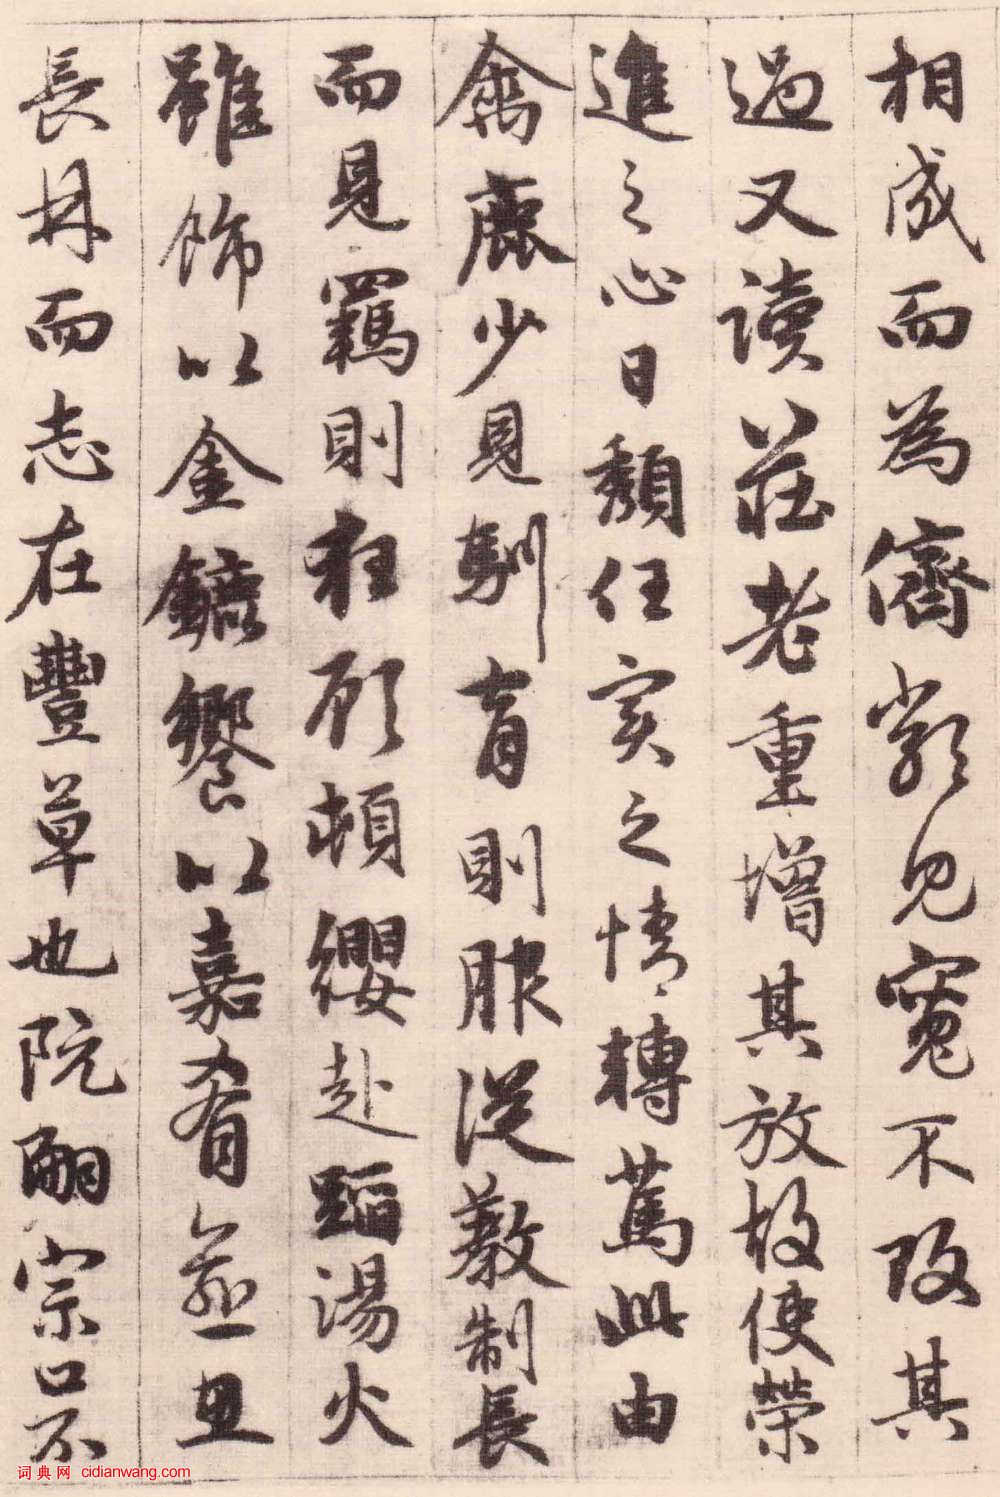 相成而為儕類見寬不攻其
過又讀莊老重增其放故使榮
進之心日頹任實之情轉篤此由
禽鹿少見馴育則服從教制長
而見羈則狂顧頓纓赴蹈湯火
雖飾以金鑣饗以嘉肴愈思
長林而志在豐草也阮嗣宗口不
词典网 cidianwang.com